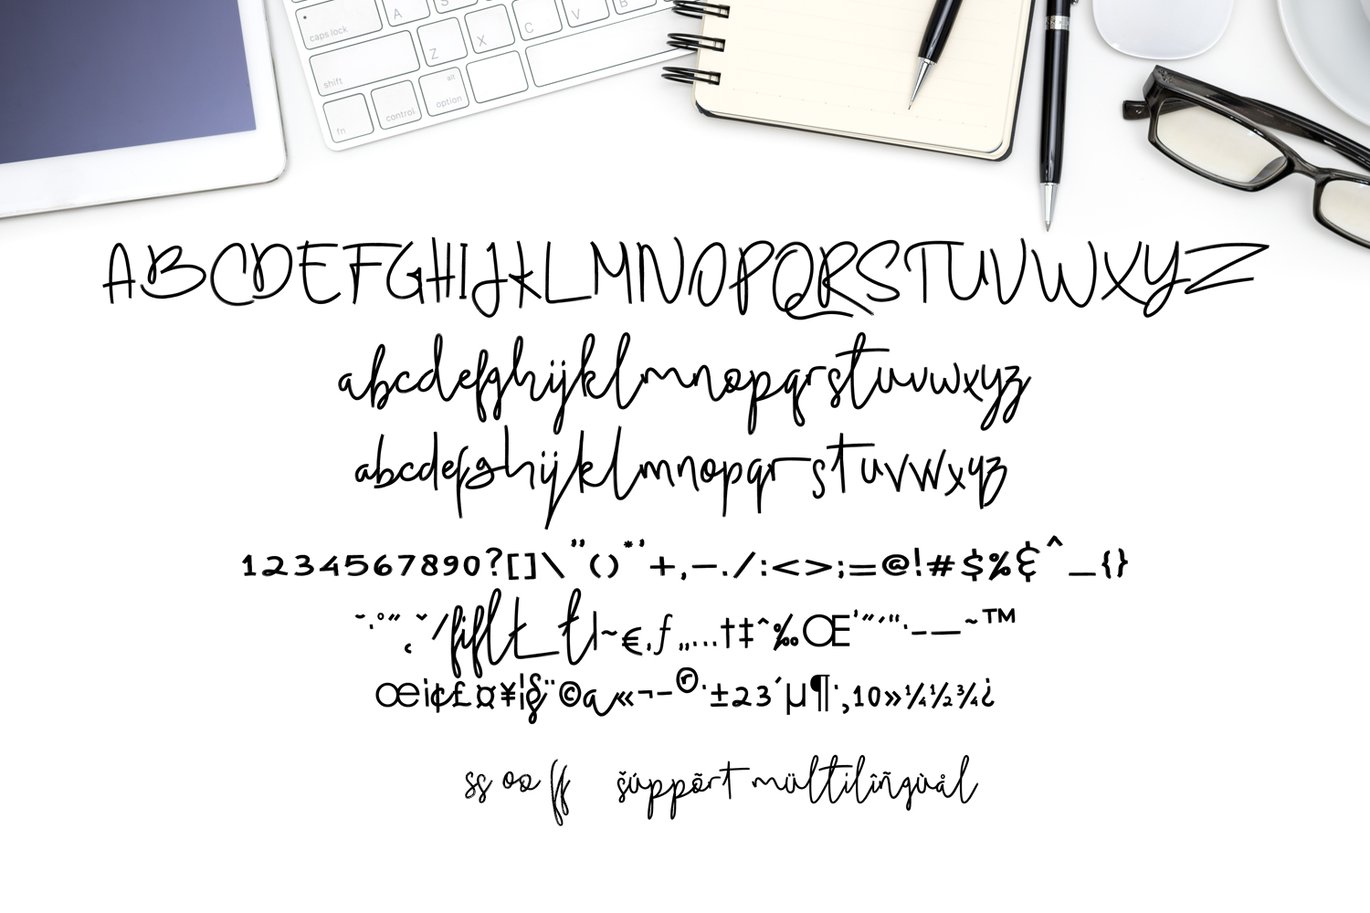 caps lock A S
shift Z X C V B
fn control alt option
ABCDEFGHIJKLMNOPQRSTUVWXYZ
abcdefghijklmnopqrstuvwxyz
abcdefghijklmnopqrstuvwxyz
1234567890?[]\"()*'+,—./:<>;=@!#$%&^_{}
fi fl t_t l~€,ƒ„…†‡ˆ‰Œ'˝´"·-—~™
œ¡¢£¤¥¦§¨©a«¬-®·±23´µ¶·,10»¼½¾¿
ss oo ff šúppõrt mültilîñgùål